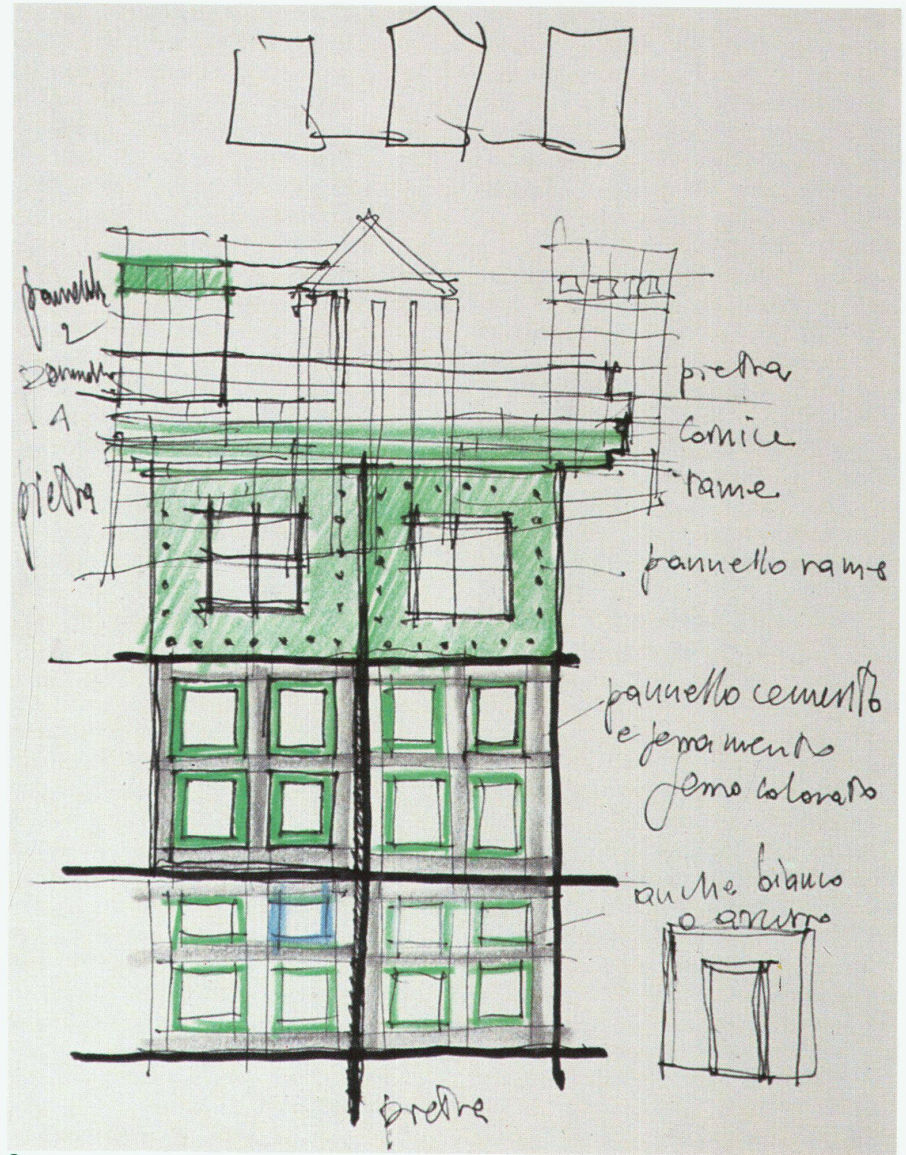 pannello
2
pannello
A
pietra
pietra
cornice
rame
pannello rame
pannello cemento
e serramento
ferro colorato
anche bianco
o azzurro
pietra